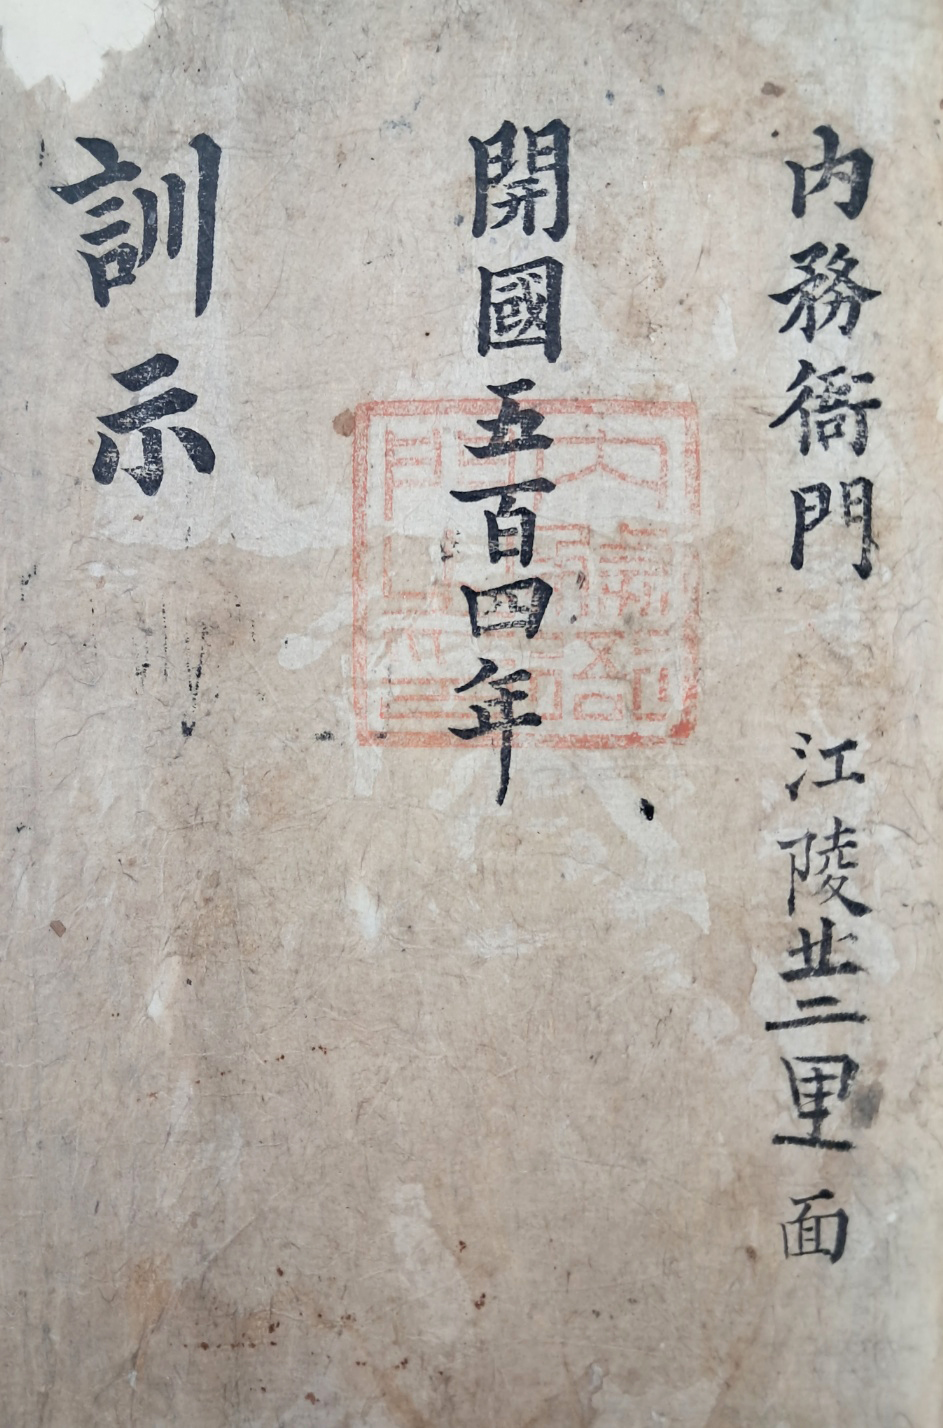 内務衙門 江陵北二里面
開國五百四年
訓示